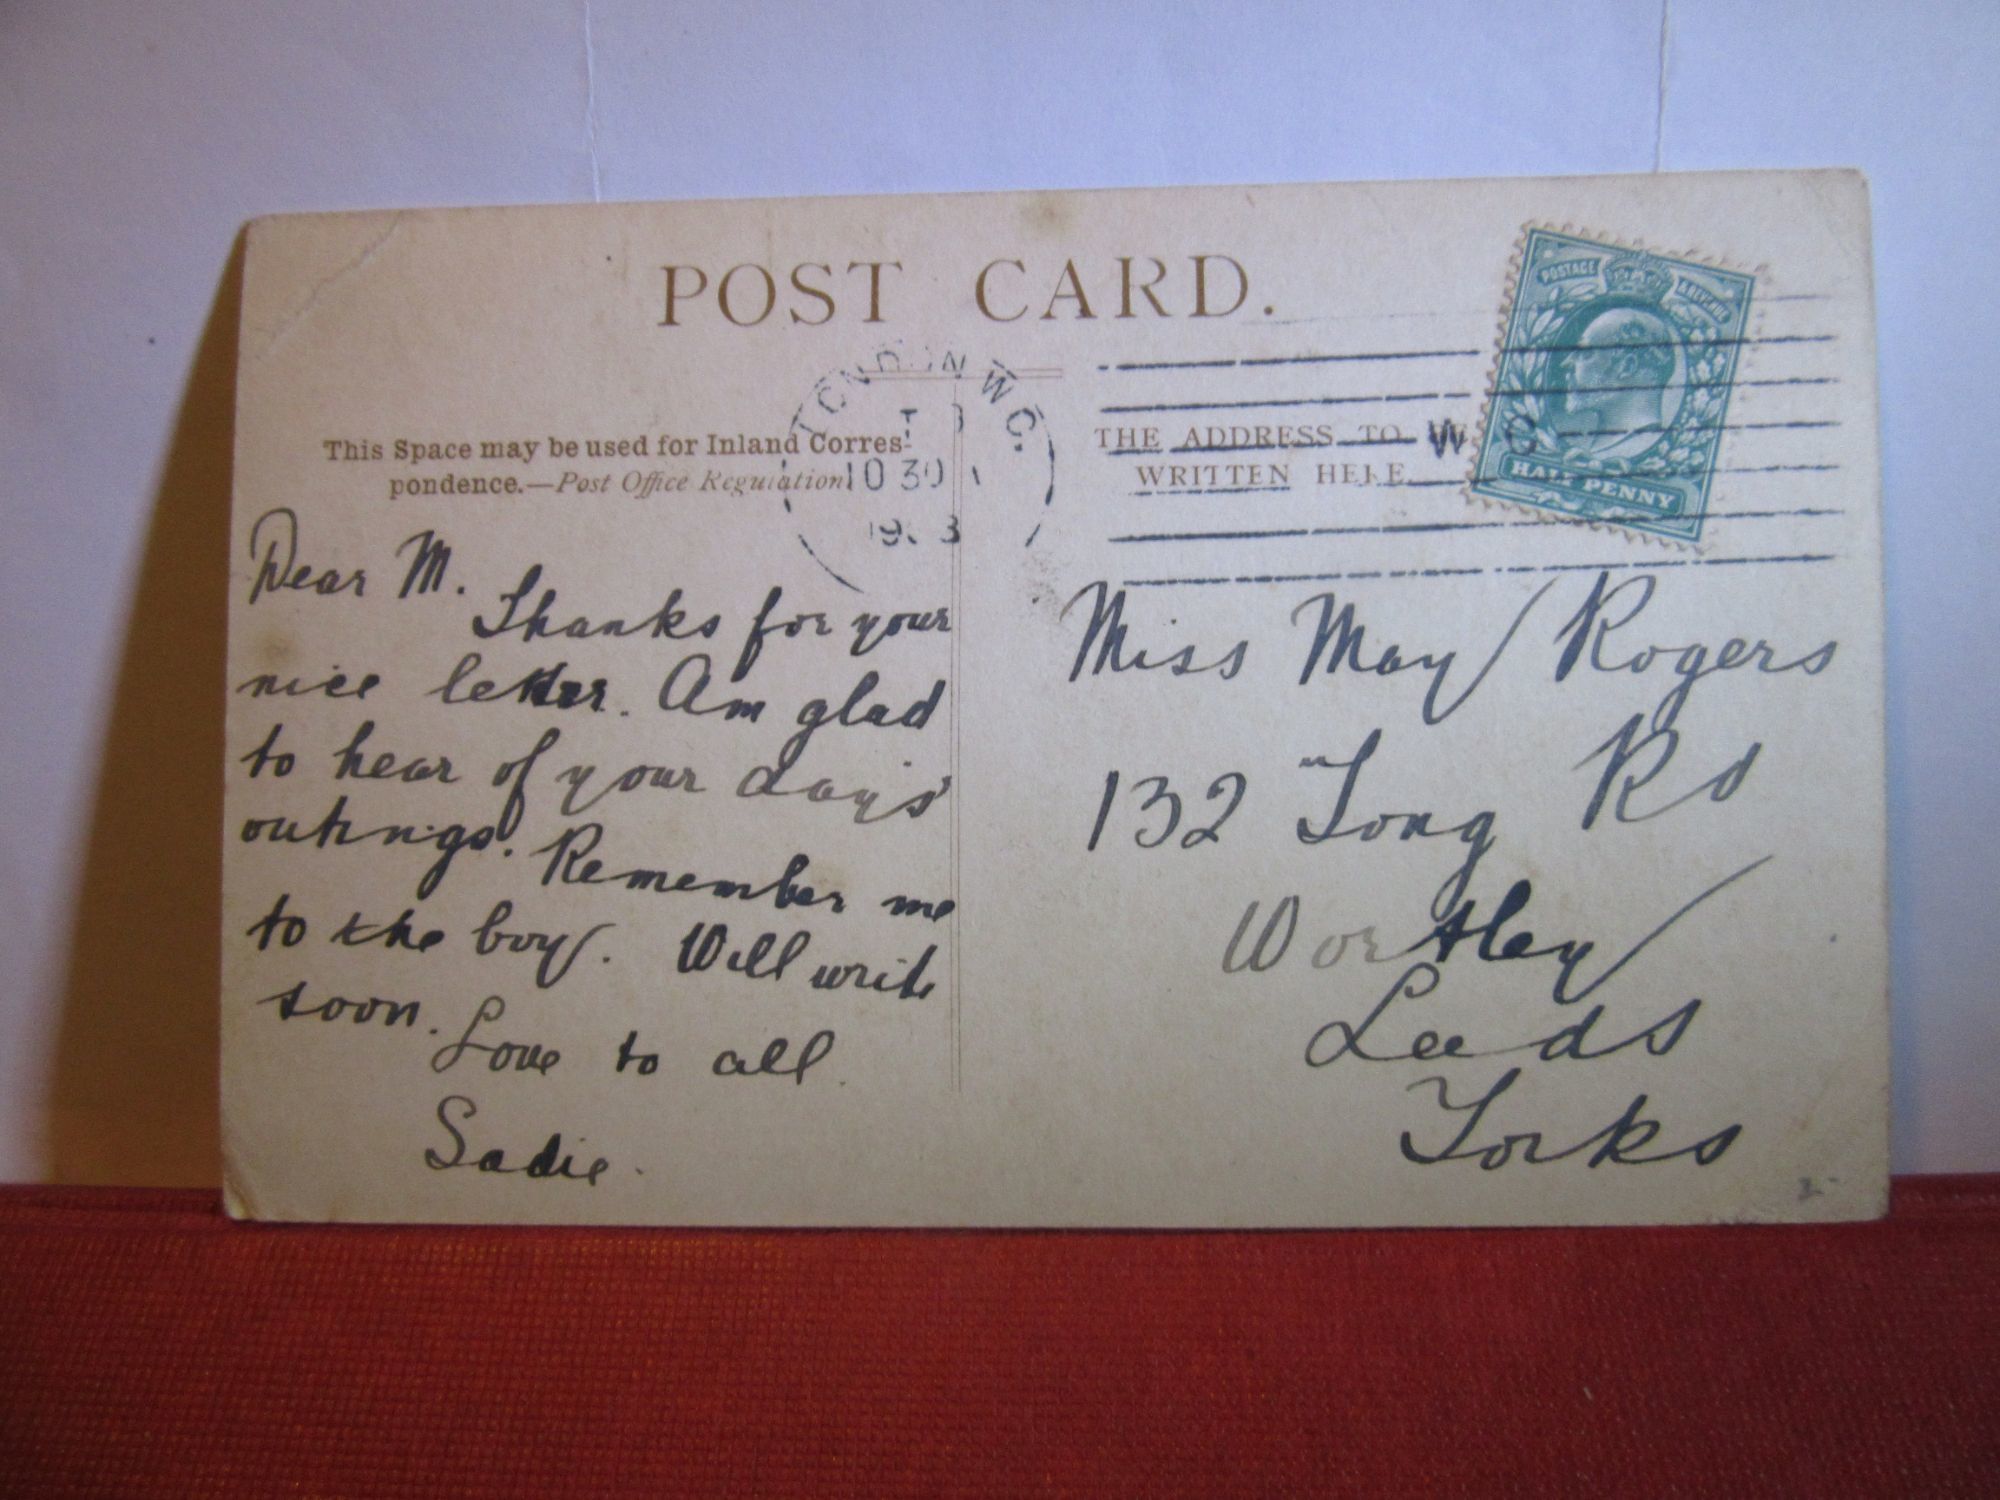 POST CARD.
This Space may be used for Inland Corres-
pondence.—Post Office Regulation
THE ADDRESS TO BE
WRITTEN HERE.
LONDON W.C.
10 30
W C
POSTAGE & REVENUE
HALF PENNY
Dear M.
Thanks for your
nice letter. Am glad
to hear of your day's
outings. Remember me
to the boy. Will write
soon.
Love to all.
Sadie.
Miss May Rogers
132 Tong Rd
Wortley
Leeds
Yorks